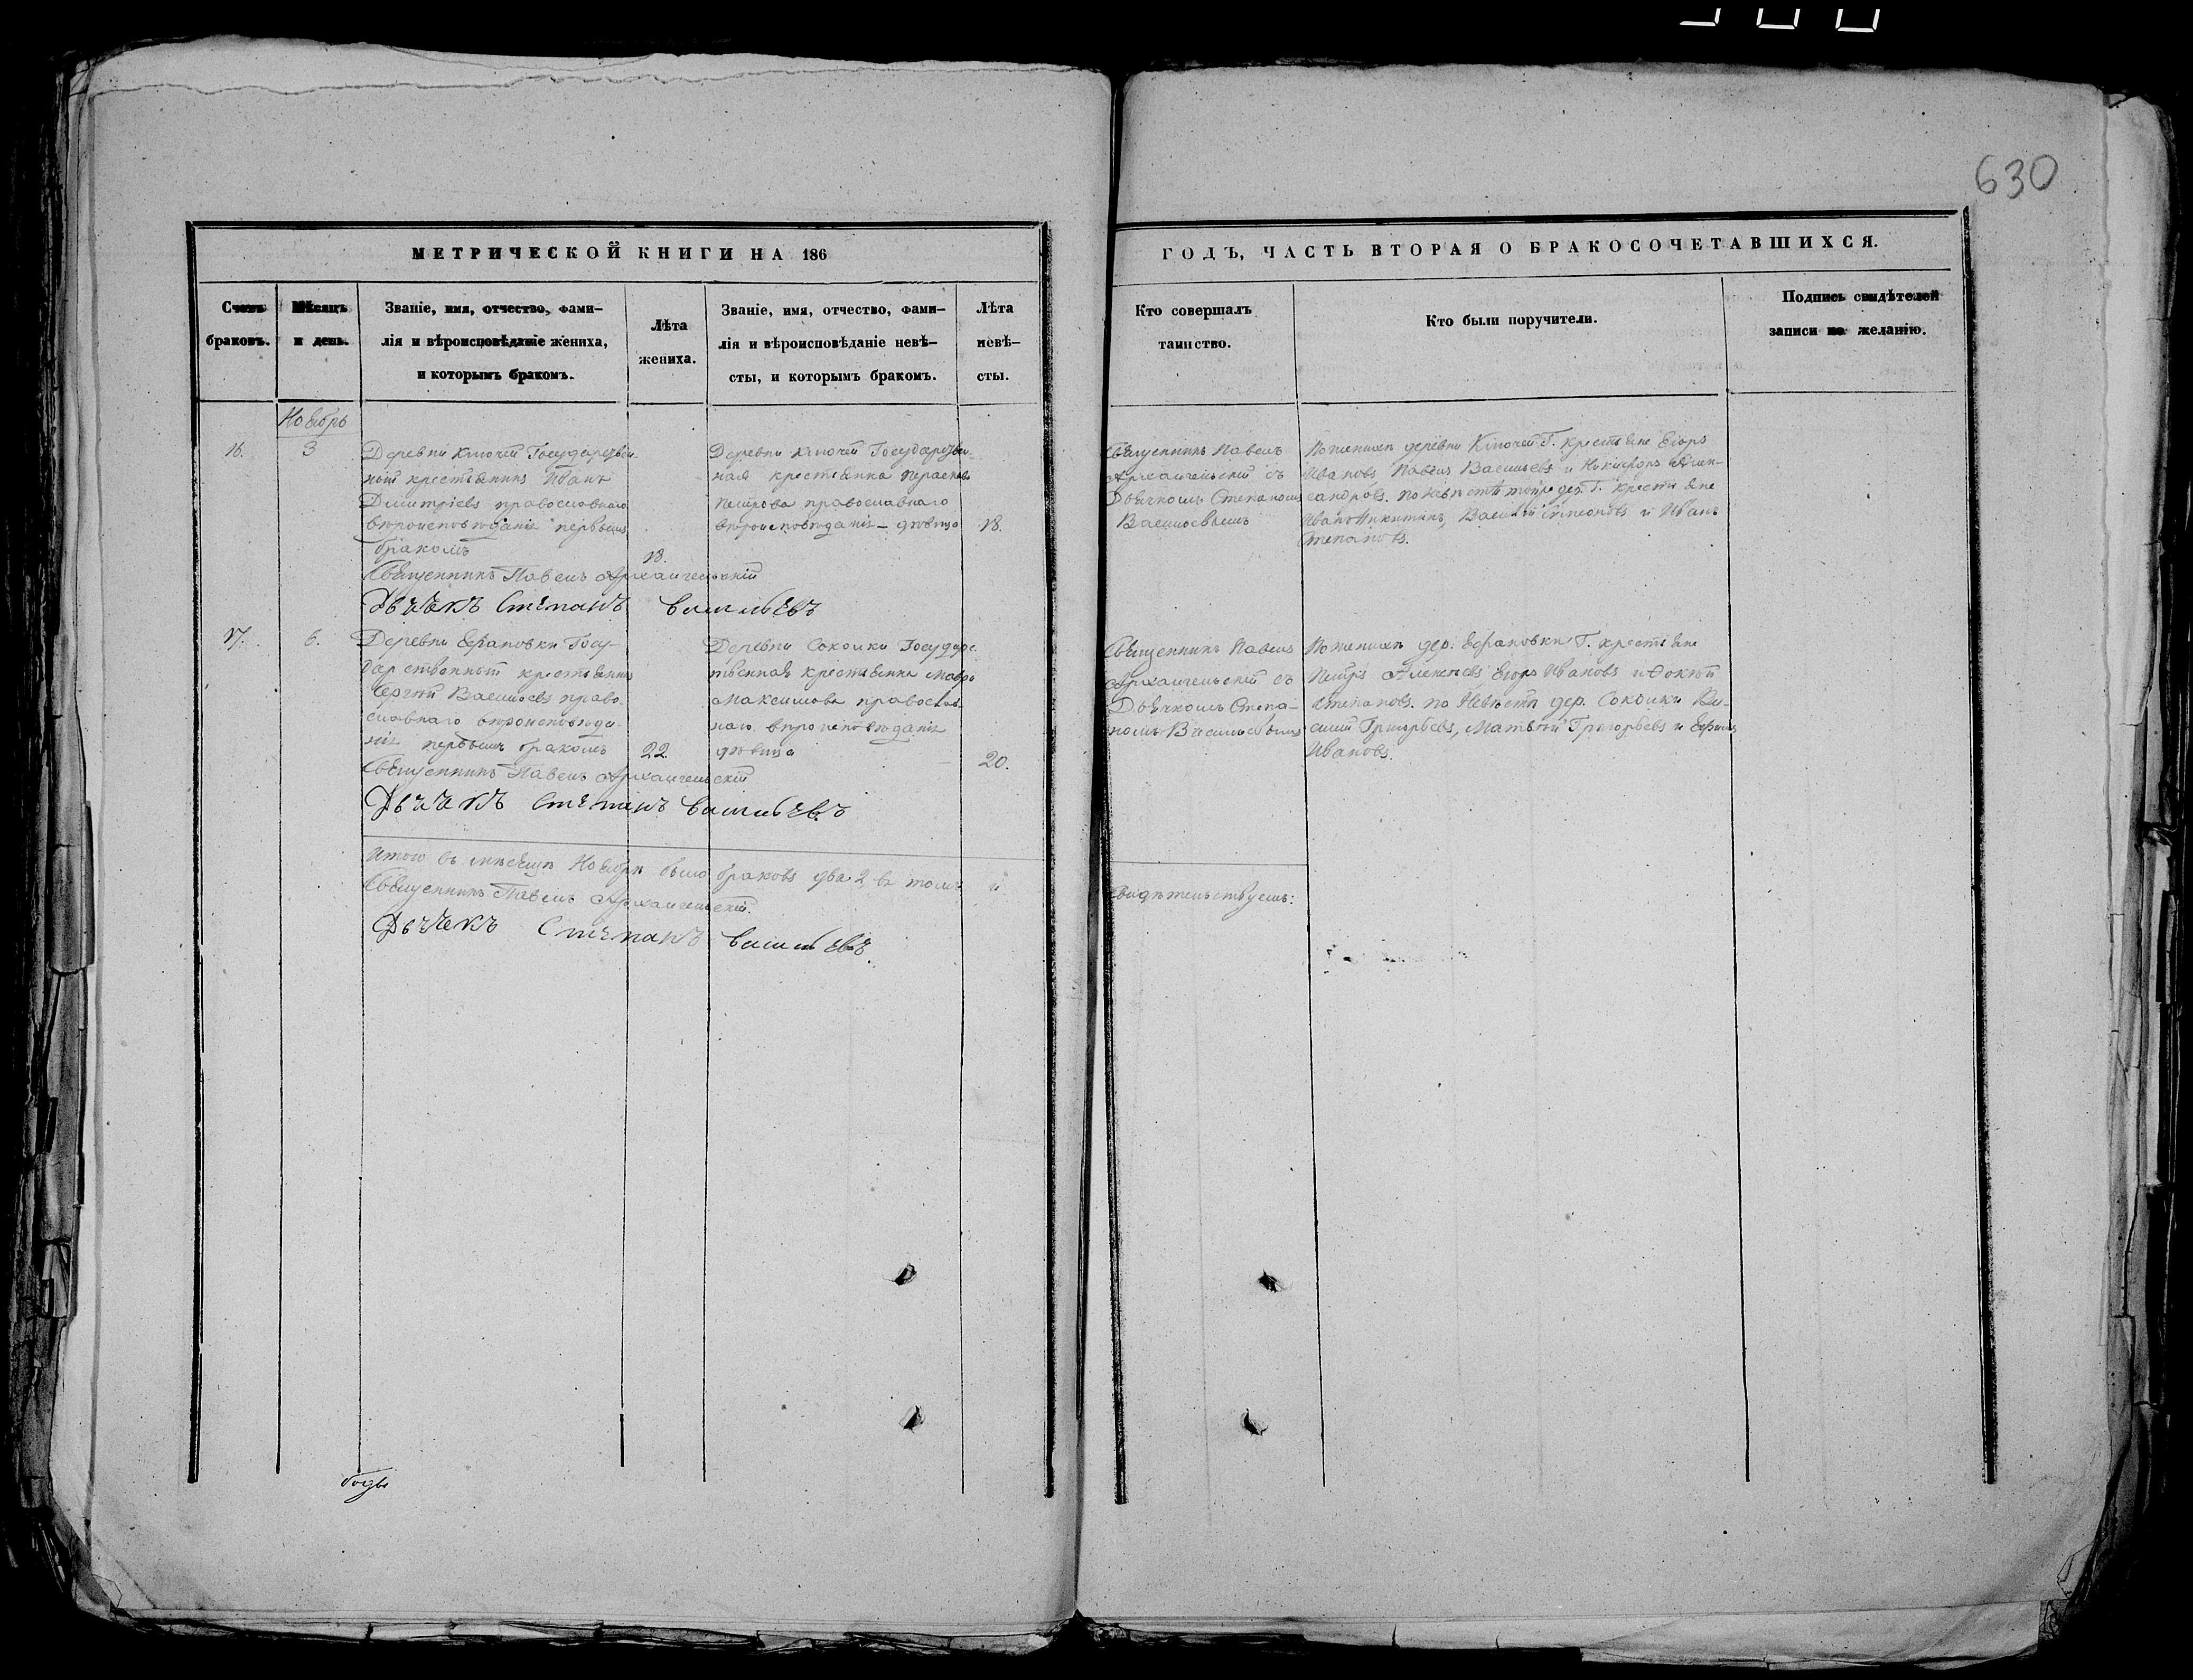 630
МЕТРИЧЕСКОЙ КНИГИ НА 186
ГОДЪ, ЧАСТЬ ВТОРАЯ О БРАКОСОЧЕТАВШИХСЯ.
Счетъ
браковъ.
Мѣсяцъ
и день.
Званіе, имя, отчество, фами-
лія и вѣроисповѣданіе жениха,
и которымъ бракомъ.
Лѣта
жениха.
Званіе, имя, отчество, фами-
лія и вѣроисповѣданіе невѣ-
сты, и которымъ бракомъ.
Лѣта
невѣ-
сты.
Кто совершалъ
таинство.
Кто были поручители.
Подпись свидѣтелей
записи по желанію.
Ноябрь
16.
3
Деревни Ключей Государствен-
ный крестьянинъ Иванъ
Димитріевъ православнаго
вѣроисповѣданія первымъ
бракомъ
18.
Деревни Ключей Государствен-
ная крестьянка Параскева
Петрова православнаго
вѣроисповѣданія – дѣвица
18.
Священникъ Павелъ
Архангельскій съ
Дьячкомъ Степаномъ
Васильевымъ
По женихѣ деревни Ключей Г. крестьяне Егоръ
Ивановъ Павелъ Васильевъ и Никифоръ Алек-
сандровъ. по невѣстѣ тойже дер. Г. крестьяне
Иванъ Никитинъ, Василій Симеоновъ и Иванъ
Степановъ.
Священникъ Павелъ Архангельскій
Дьячекъ Степанъ Васильевъ
17.
6.
Деревни Ефановки Госу-
дарственный крестьянинъ
Сергѣй Васильевъ право
славнаго вѣроисповѣда-
нія первымъ бракомъ
22.
Деревни Соколки Государс
твенная крестьянка Мавра
Максимова православ
наго вѣроисповѣданія
дѣвица
20.
Священникъ Павелъ
Архангельскій съ
Дьячкомъ Степа-
номъ Васильевымъ
По женихѣ дер. Ефановки Г. крестьяне
Петръ Алексѣевъ Егоръ Ивановъ и Фокѣй
Степановъ. по Невѣстѣ дер. Соколки Ва-
силій Григорьевъ, Матвѣй Григорьевъ и Ефимъ
Ивановъ.
Священникъ Павелъ Архангельскій
Дьячекъ Степанъ Васильевъ
Итого въ мѣсяцѣ Ноябрѣ было браковъ два 2, въ томъ и
свидѣтельствуемъ:
Священникъ Павелъ Архангельскій.
Дьячекъ Степанъ Васильевъ.